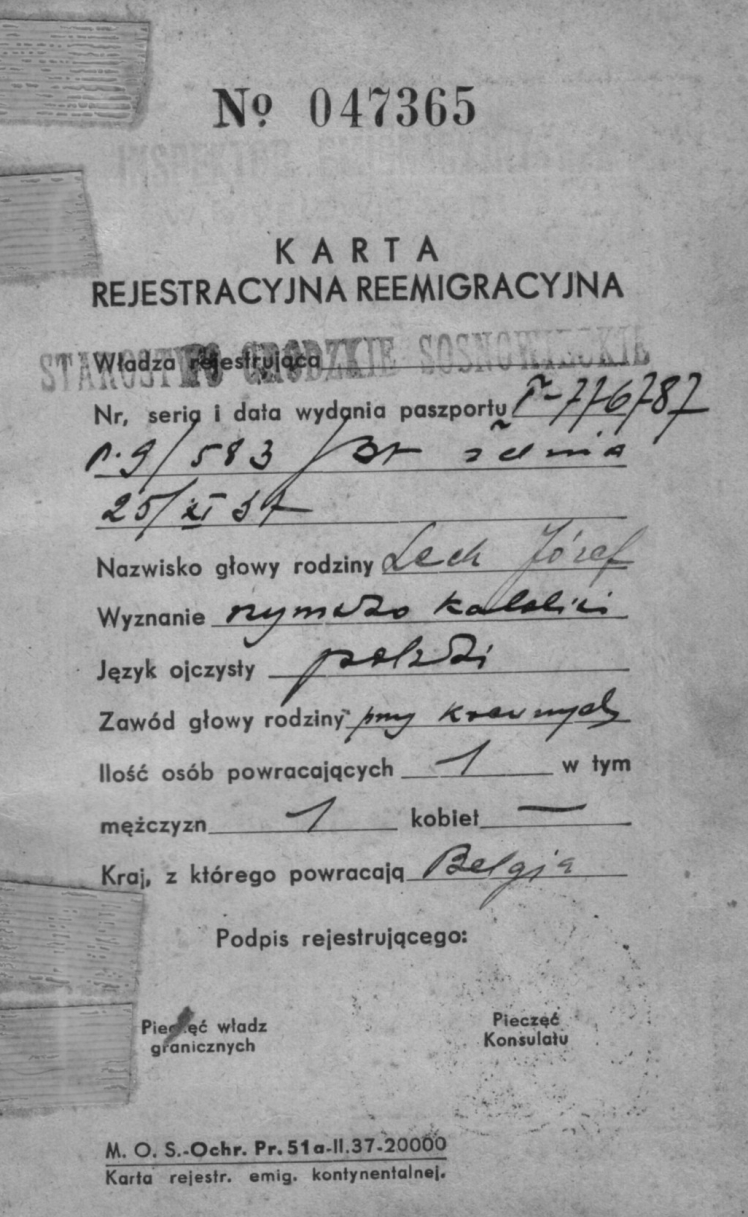 No 047365
KARTA
REJESTRACYJNA REEMIGRACYJNA
Władza rejestrująca STAROSTWO GRODZKIE SOSNOWIECKIE
Nr, seria i data wydania paszportu 776787
583 z dnia
25/XI 37
Nazwisko głowy rodziny Lech Józef
Wyznanie rzymsko katolicki
Język ojczysty polski
Zawód głowy rodziny
Ilość osób powracających 1 w tym
mężczyzn 1 kobiet —
Kraj, z którego powracają Belgja
Podpis rejestrującego:
Pieczęć władz
granicznych
Pieczęć
Konsulatu
M. O. S.-Ochr. Pr. 51a-II.37-20000
Karta rejestr. emig. kontynentalnej.